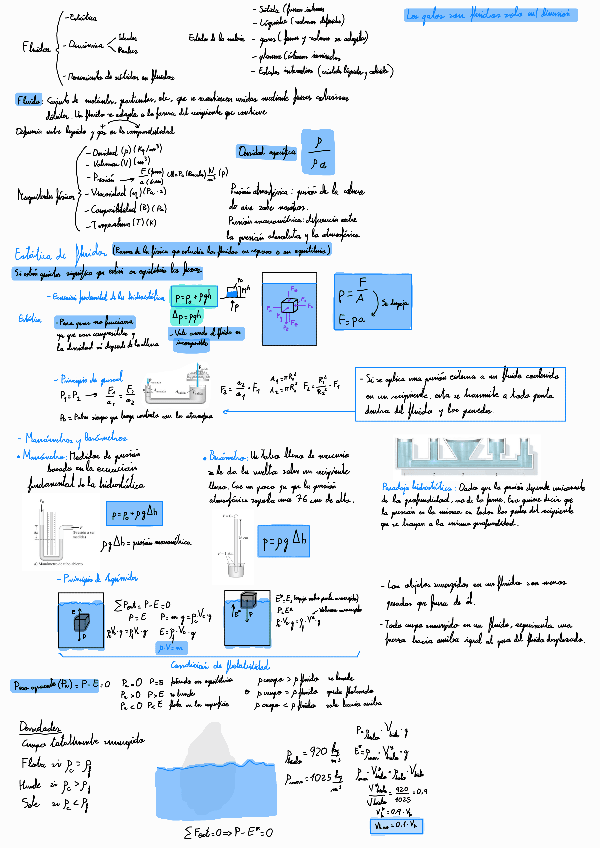 Los gatos son fluidos solo en 1 dimensión
Fluidos
- Estática
- Dinámica
Ideales
Reales
- Movimiento de sólidos en fluidos
Estados de la materia
- Sólido (forma
- Líquido (volumen definido)
- gases (forma y volumen se adaptan)
- plasma (átomos ionizados)
- Estados intermedios (cristales líquidos y
Fluido: Conjunto de moléculas, partículas, etc, que se mantienen unidas mediante fuerzas cohesivas
débiles. Un fluido se adapta a la forma del recipiente que contiene
Diferencia entre líquido y gas es la compresibilidad
Magnitudes físicas
- Densidad (ρ) (Kg/m³)
- Volumen (V) (m³)
- Presión → F (fuerza) / a (área) N/m² (p)
- Viscosidad (η) (Pa·s)
- Compresibilidad (B) (Pa)
- Temperatura (T) (K)
Densidad específica
ρ / ρa
Presión atmosférica: presión de la columna
de aire sobre nosotros.
Presión manométrica: diferencia entre
la presión absoluta y la atmosférica
Estática de fluidos (Rama de la física que estudia los fluidos en reposo o en equilibrio)
Si están quietos significa que están en equilibrio las fuerzas
- Ecuación fundamental de la hidrostática
p = p₀ + ρgh
Δp = ρgh
P₀
ρgh
P
P = F/A
Se despeja
F = pa
Estática
Para gases no funciona
ya que son compresibles y
la densidad sí depende de la altura
- Vale cuando el fluido es
incompresible
- Principio de pascal
P₁ = P₂ → F₁/a₁ = F₂/a₂
F₂ = a₂/a₁ · F₁
A₁ = πR₁²
A₂ = πR₂²
F₂ = R₂²/R₁² · F₁
P₀ = Patm siempre que tenga contacto con la atmosfera
- Si se aplica una presión externa a un fluido contenido
en un recipiente, esta se transmite a todo punto
dentro del fluido y las paredes
- Manómetros y Barómetros
• Manómetro: Medidor de presión
basado en la ecuación
fundamental de la hidrostática
• Barómetro: Un tubo lleno de mercurio
se le da la vuelta sobre un recipiente
lleno. Con un poco ya que la presión
atmosférica soporta una 76 cm de alto.
Paradoja hidrostática: Dado que la presión depende unicamente
de la profundidad, no de la forma. Eso quiere decir que
la presión es la misma en todos los puntos del recipiente
que se hayan a la misma profundidad.
p = p₀ + ρgΔh
ρgΔh = presión manométrica
a) Manómetro de tubo abierto
p = ρgΔh
- Principio de Arquímides
E
P
ΣFext = P - E = 0
P = E
P = m·g = ρc·Vc·g
E = ρf·Vc·g
ρ·V = m
E*
P
P = E*
Volumen sumergido
- Los objetos sumergidos en un fluido son menos
pesados que fuera de él.
- Todo cuerpo sumergido en un fluido, experimenta una
fuerza hacia arriba igual al peso del fluido desplazado.
Condición de flotabilidad
Peso aparente (Pa) = P - E = 0
Pa = 0 P = E flotando en equilibrio
Pa > 0 P > E se hunde
Pa < 0 P < E flota en la superficie
ρ cuerpo > ρ fluido se hunde
ρ cuerpo = ρ fluido queda flotando
ρ cuerpo < ρ fluido sale hacia arriba
Densidades
Cuerpo totalmente sumergido
Flota si ρc = ρf
Hunde si ρc > ρf
Sale si ρc < ρf
ΣFext = 0 ⇒ P - E* = 0
ρhielo = 920 kg/m³
ρmar = 1025 kg/m³
P = ρhielo · Vhielo · g
E* = ρmar · V*hielo · g
ρmar · V*hielo = ρhielo · Vhielo
V*hielo / Vhielo = 920 / 1025 = 0.9
V*h = 0.9 · Vh
= 0.1 · Vh